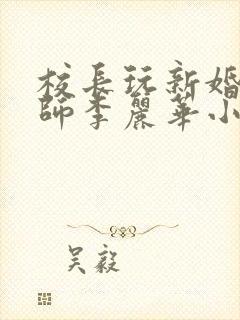 校長玩新婚
師李麗華小
吳毅